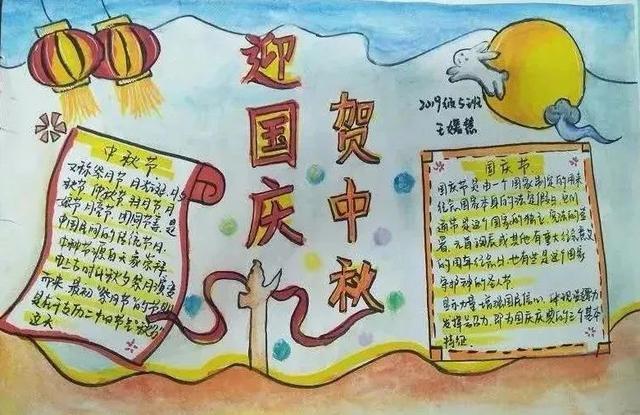 迎国庆
贺中秋
2019级5班
中秋节
又称祭月节、月
秋节、仲秋节、拜月节、月
节、月亮节、团圆节等,是
中国民间的传统节日。
中秋节源自天象崇拜,
由上古时代秋夕祭月演变
而来。最初“祭月节”的节期
是在干支历二十四节气“秋分”
这天
国庆节
国庆节是由一个国家制定的用来
纪念国家本身的法定假日。它们
通常是这个国家的独立、宪法的签
署、元首诞辰或其他有重大纪念意义
的周年纪念日,也有些是这个国家
守护神的圣人节。
显示力量、增强国民信心,体现凝聚力,
发挥号召力,即为国庆庆典的三个基本
特征。